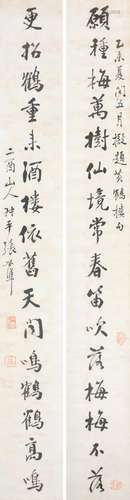 願種梅萬樹仙境常春笛吹落梅梅不落
乙未夏閏五月擬題黃鶴樓句
更招鶴重來酒樓依舊天問鳴鶴鶴高鳴
二酉山人